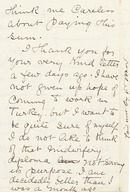 think me careless
about paying this
sum.
I thank you for
your very kind letter
a few days ago. I have
not given up hope of
coming to work in
Turkey, but I want to
be quite sure of myself
I do not ask to think
of that midwifery
diploma not having
its purpose. I am
decidedly better than I
was a month ago